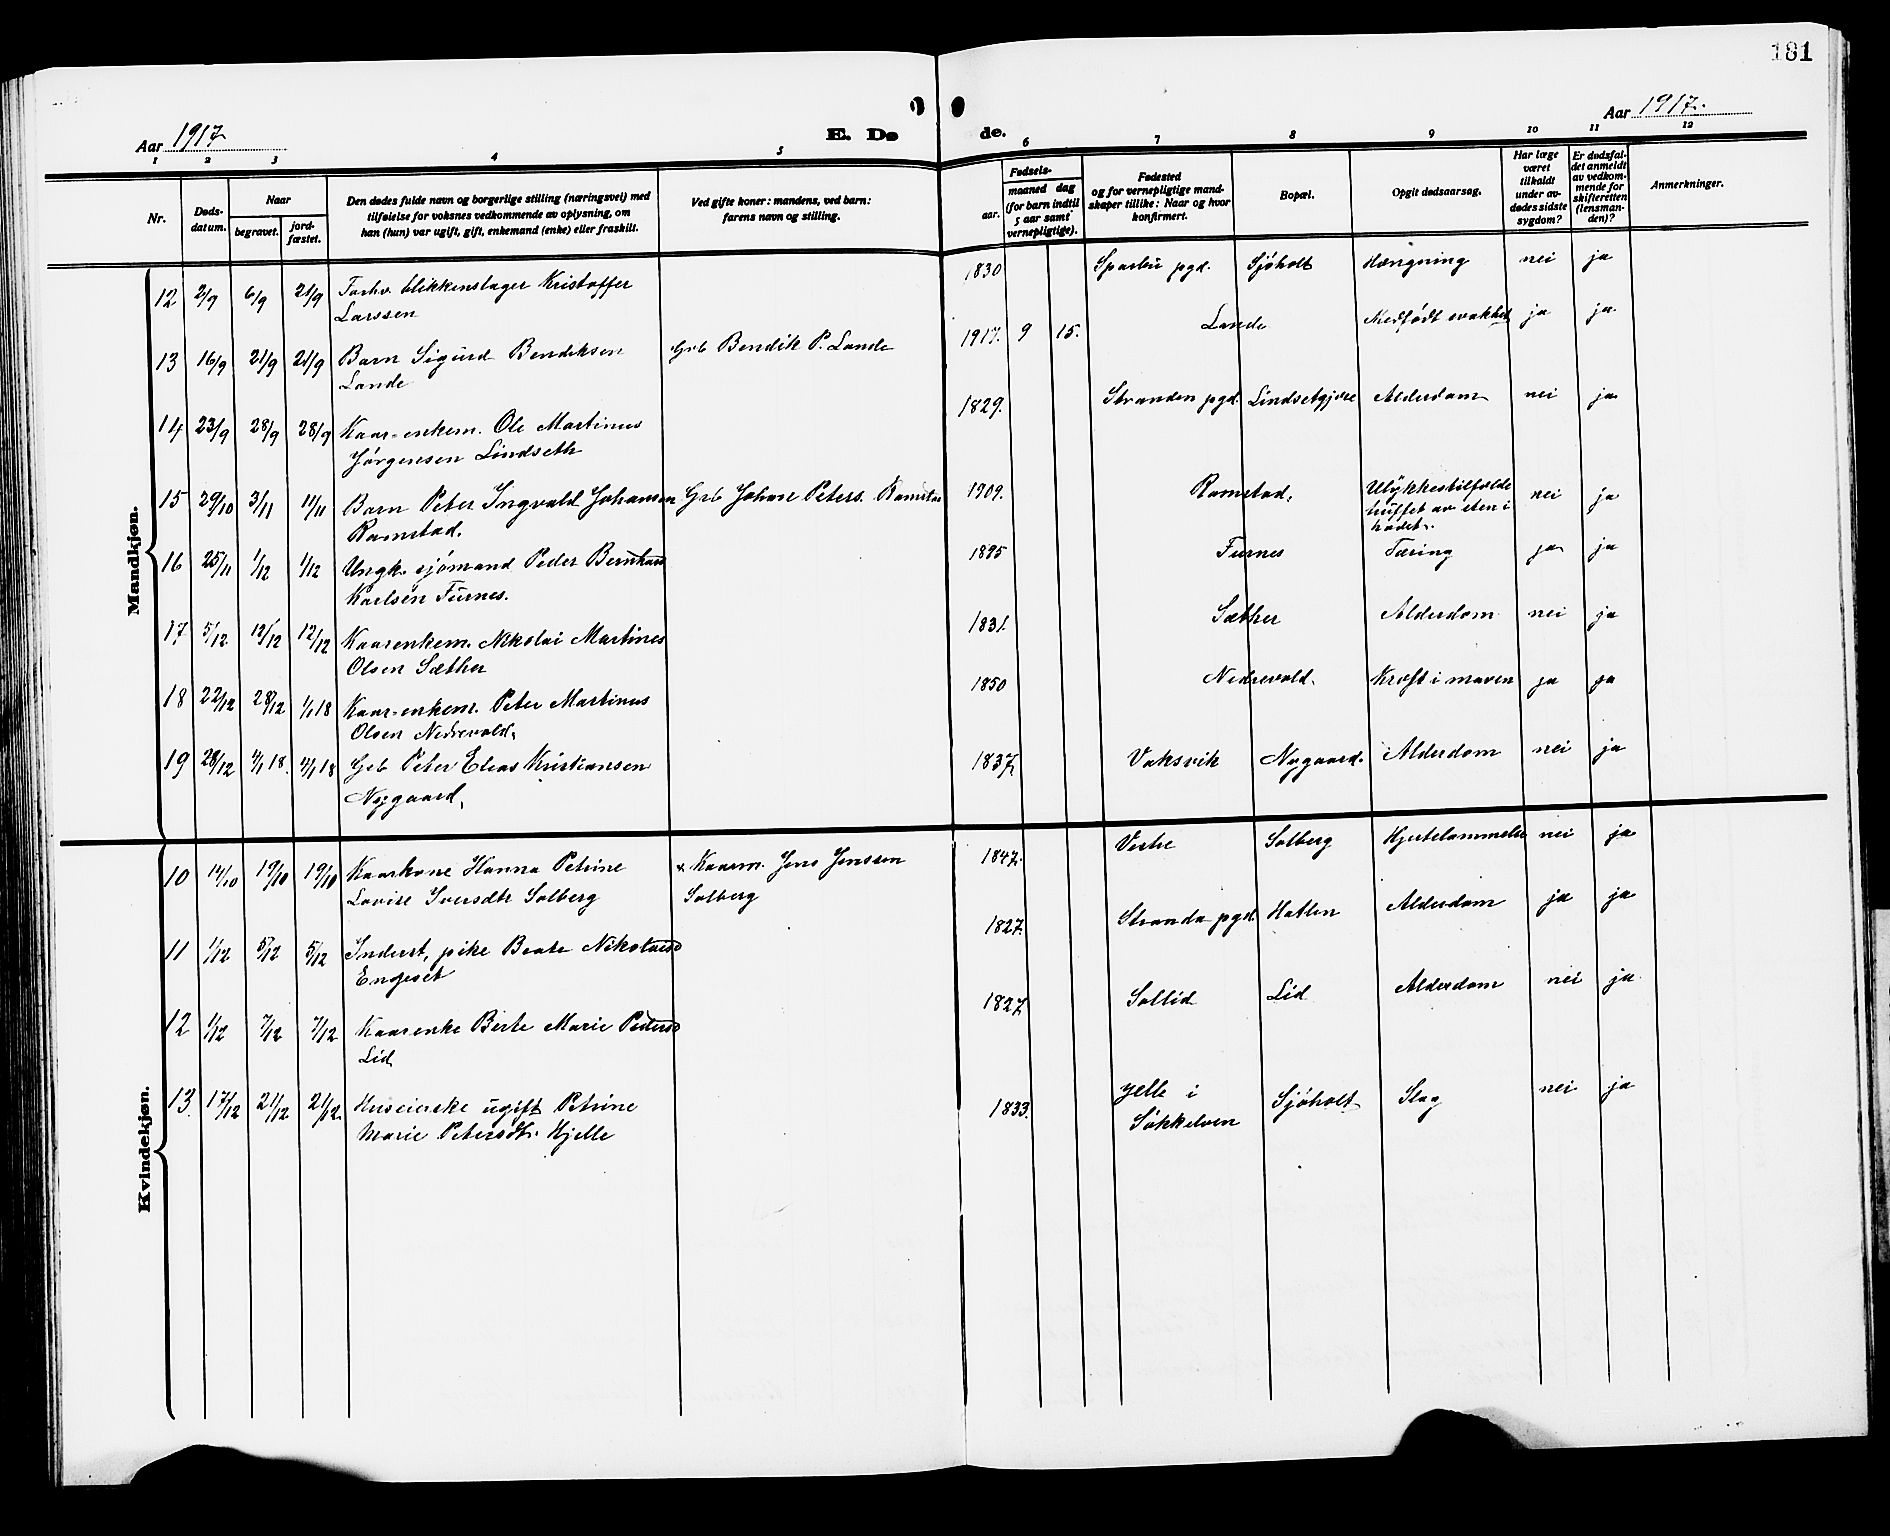 181
Aar 1917.
E. Dø
de.
Aar 1917.
1 2 3 4 5 6 7 8 9 10 11 12
Nr.
Døds-
datum.
Naar
begravet.
jord-
fæstet.
Den dødes fulde navn og borgerlige stilling (næringsvei) med
tilføielse for voksnes vedkommende av oplysning, om
han (hun) var ugift, gift, enkemand (enke) eller fraskilt.
Ved gifte koner: mandens, ved barn:
farens navn og stilling.
Fødsels-
aar.
maaned dag
(for barn indtil
5 aar samt
vernepligtige).
Fødested
og for vernepligtige mand-
skaper tillike: Naar og hvor
konfirmert.
Bopæl.
Opgit dødsaarsag.
Har læge
været
tilkaldt
under av-
dødes sidste
sygdom?
Er dødsfal-
det anmeldt
av vedkom-
mende for
skifteretten
(lensman-
den)?
Anmerkninger.
Mandkjøn.
12 2/9 6/9 21/9 Forhv. blikkenslager Kristoffer 1830 Sparbu pgd. Sjøholt Hængning nei ja
Larssen
13 16/9 21/9 21/9 Barn Sigurd Bendiksen Grb Bendik P. Lande 1917. 9 15. Lande Medfødt svakhet ja ja
Lande
14 23/9 28/9 28/9 Kaar-enkem. Ole Martinus 1829. Stranden pgd. Lindsetgjære Alderdom nei ja
Jørgensen Lindseth
15 29/10 3/11 11/11 Barn Peter Ingvald Johansen Grb Johan Peters. Ramstad 1909. Ramstad. Ulykkestilfælde nei ja
Ramstad. truffet av sten i
hodet.
16 25/11 1/12 1/12 Ungk. sjømand Peder Bernhard 1895 Furnes Tæring ja ja
Karlsen Furnes.
17 5/12 12/12 12/12 Kaarenkem. Nikolai Martines 1831. Sæther Alderdom nei ja
Olsen Sæther
18 22/12 28/12 1/1 18 Kaar-enkem. Peter Martinus 1850 Nedrevold. Kræft i maven ja ja
Olsen Nedrevold.
19 28/12 4/1 18. 4/1 18 Grb Peter Elias Kristiansen 1837. Vaksvik Nygaard. Alderdom nei ja
Nygaard.
Kvindekjøn.
10 14/10 19/10 19/10 Kaarkone Hanna Petrine Kaarm. Jens Jenssen 1847. Vestre Solberg Hjertelammelse nei ja
Lovise Iversdtr Solberg Solberg
11 1/12 5/12 5/12 Inderst, pike Beate Nikolaisd 1827. Stranda pgd. Hatlen Alderdom ja ja
Engeset
12 1/12 7/12 7/12 Kaarenke Berte Marie Pedersd 1827 Sollid Lid Alderdom nei ja
Lid
13. 17/12 21/12 21/12. Huseierske ugift Petrine 1833. Jelle i Sjøholt Slag nei ja
Marie Petersdtr. Hjelle Søkkelven